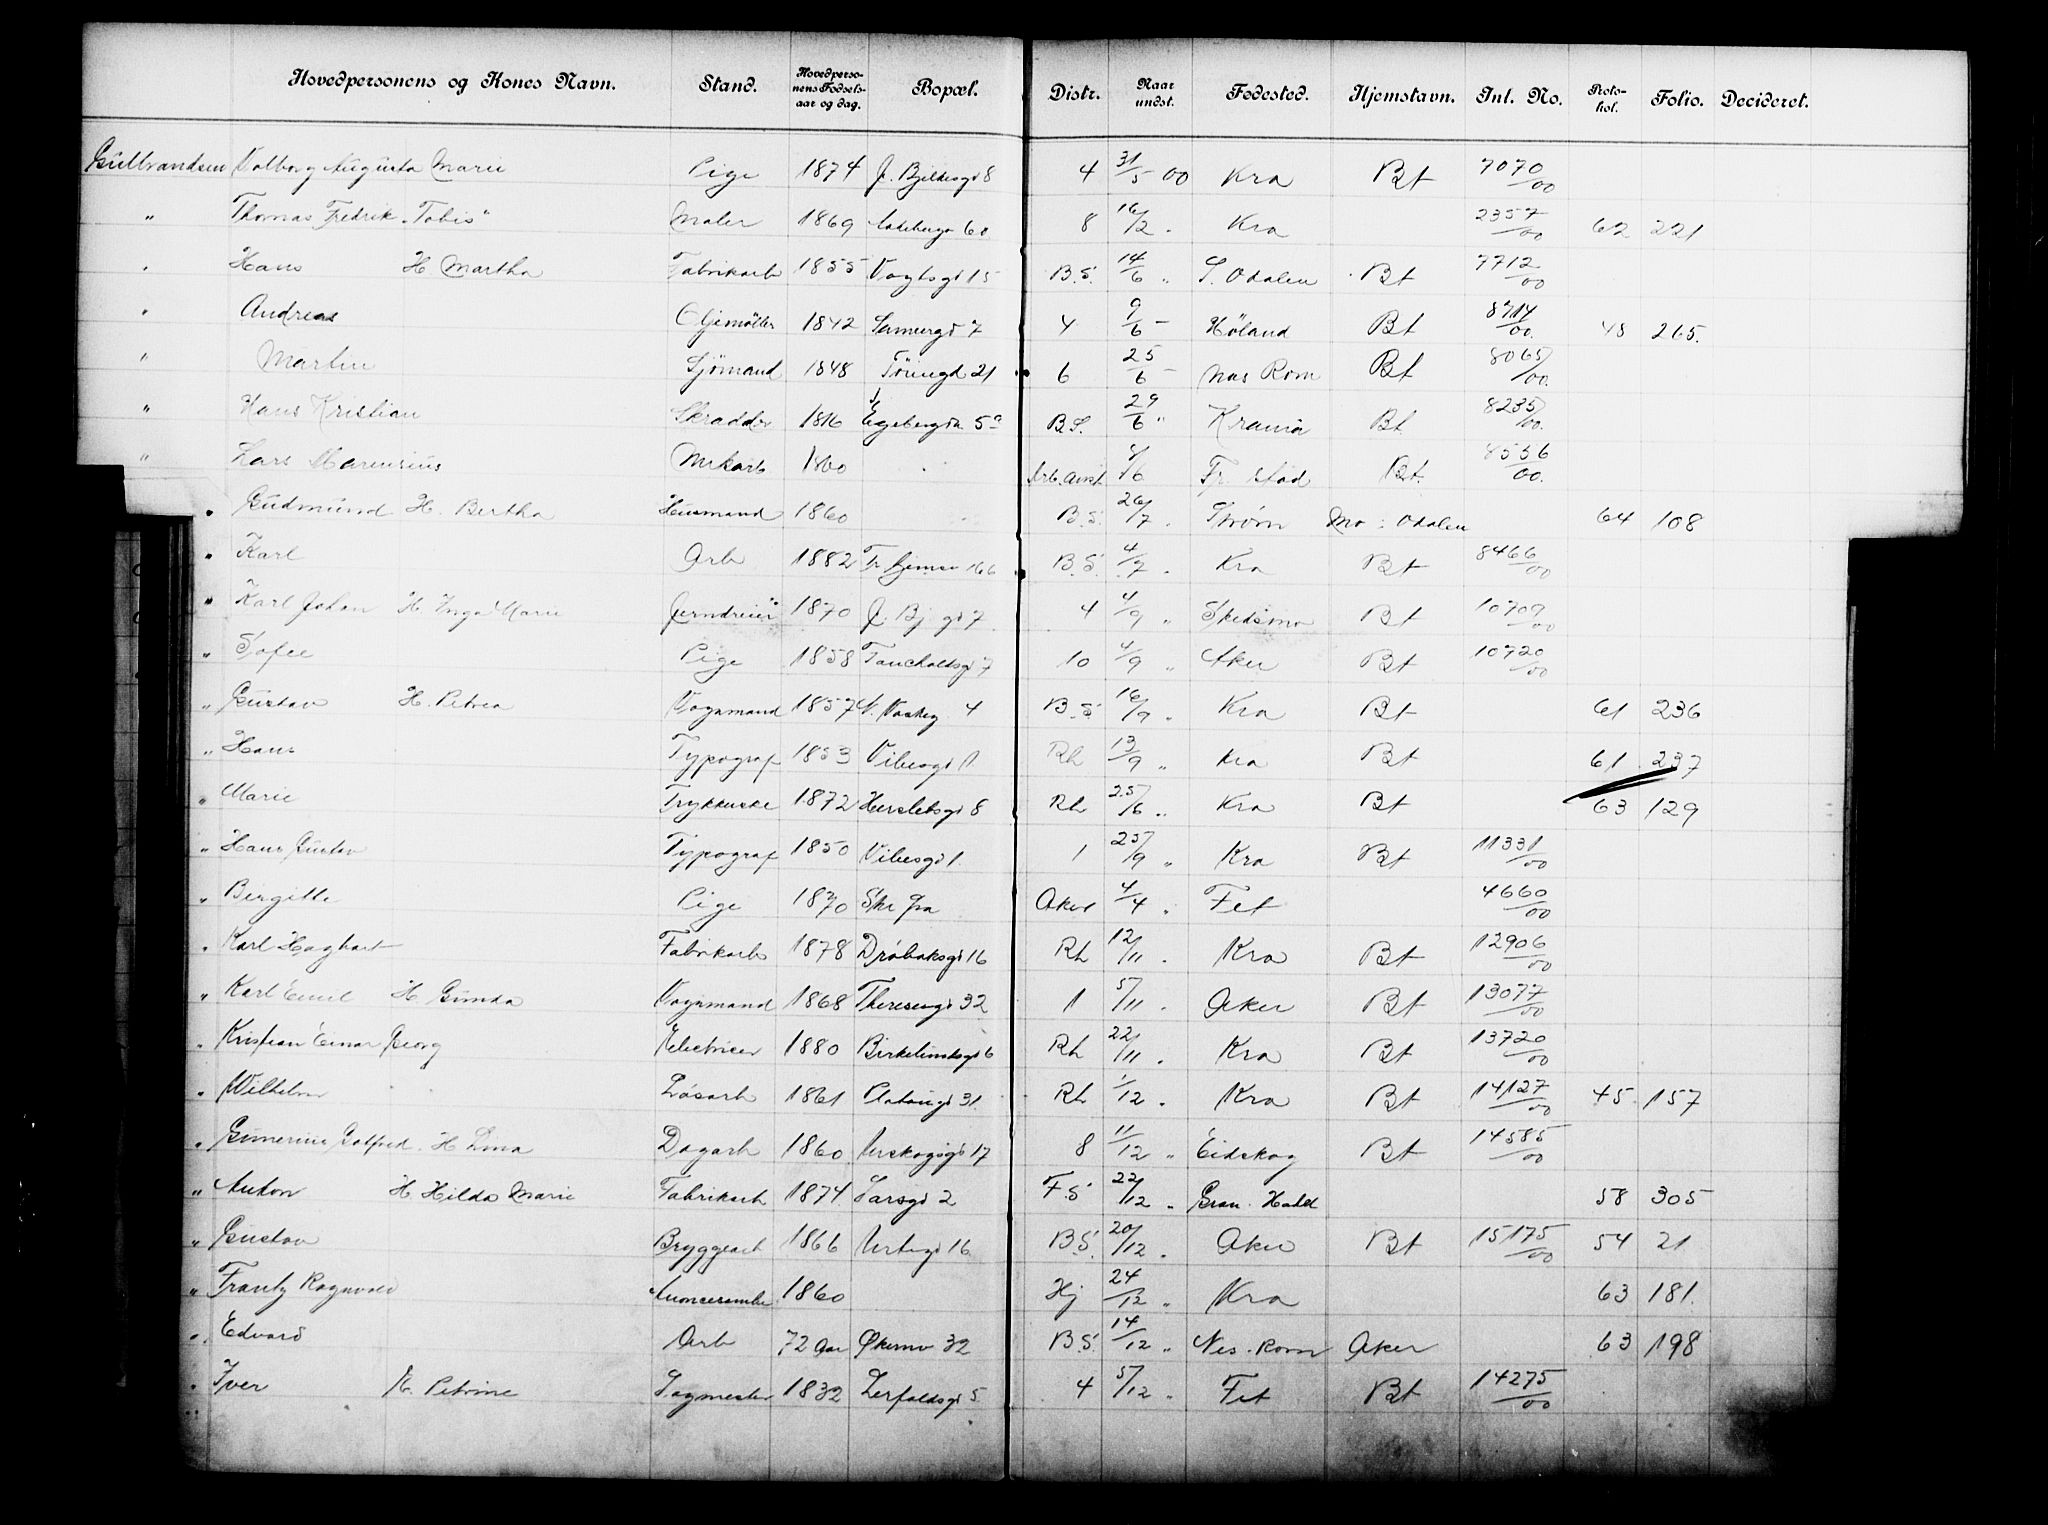 Hovedpersonens og Kones Navn. Stand. Hovedperso-nens Fødsels-aar og dag. Bopæl. Distr. Naar undst. Fødested. Hjemstavn. Inl. No. Proto-kol. Folio. Decideret.
Gulbrandsen Valborg Augusta Marie Pige 1874 J. Bjelkesgd 8 4 31/5 00 Kra Bt 7070/00
" Thomas Fredrik "Tobis" Maler 1869 60 8 16/2 " Kra 2357/00 62 221
" Hans H Martha Fabrikarb 1855 Vogtsgd 15 B.S. 14/6 " S. Odalen Bt 7712/00
" Andreas Oljemøller 1842 7 4 9/6 - Høland Bt 8714/00. 48 265.
" Martin Sjömand 1848 Töiengd 21 6 25/6 - Nas Rom Bt 8065/00.
" Hans Kristian Skrædder 1816 Egebergsk 5a B.S. 29/6 " Krania Bt 8235/00.
" Lars Marensius Murkarb 1860 Arb. Anst /6 Fr. stad Bt. 8556/00.
" Gudmund H. Bertha Husmand 1860 B.S. 26/7 " Strøm Mo: Odalen 64 108
" Karl Arb 1882 Tr hjemsv 166 B.S. 4/7 " Kra Bt 8466/00
" Karl Johan H. Inga Marie Jerndreier 1870 J. Bj gd 7 4 4/9 " Skedsmo Bt 10709/00
" Sofie Pige 1858 Fauchaldsgd 7 10 4/9 " Aker Bt 10720/00
" Gustav H. Petrea Vognmand 1857 V. 4 B.S. 16/9 " Kra Bt 61 236
" Hans Typograf 1853 Vibesgd 1 Rh 13/9 " Kra Bt 61 237
" Marie Trykkerske 1872 Hersletsgd 8 Rh 25/6 " Kra Bt 63 129
" Hans Gustav Typograf 1850 Vibesgd 1. 1 25/9 " Kra Bt 11331/00
" Birgitte Pige 1870 Skr fra Aker 4/4 " Fet 4660/00
" Karl Hagbart Fabrikarb 1878 Dröbaksgd 16 Rh 12/11 " Kra Bt 12906/00
" Karl Emil H Gunda Vognmand 1868 Theresesgd 32 1 5/11 " Aker Bt 13077/00
" Kristian Einar Georg Electricer 1880 Birkelundsgd 6 Rh 22/11 " Kra Bt 13720/00
" Wilhelm Lösarb 1861 Platousgd 31 Rh 1/12 " Kra Bt 14127/00 45 157
" Gunerius Gotfred H Lina Dagarb 1860 Urskogsgd 17 8 11/12 " Eidskog Bt 14585/00
" Anton H Hilda Marie Fabrikarb 1874 Larsgd 2 F.S 22/12 " Gran. Hadel 58 305
" Gustav Bryggearb 1866 Urtegd 16 B.S. 20/12 " Aker Bt 15175/00 54 21
" Frantz Ragnvald 1860 Hj 24/12 " Kra 63 181.
" Edvard Arb 72 Aar Økernv 32 B.S. 14/12 " Nes. Rom Aker 63 198
" Iver H. Petrine Sagmester 1832 Zerfaldsgd 5 4 5/12 " Fet Bt 14275/00